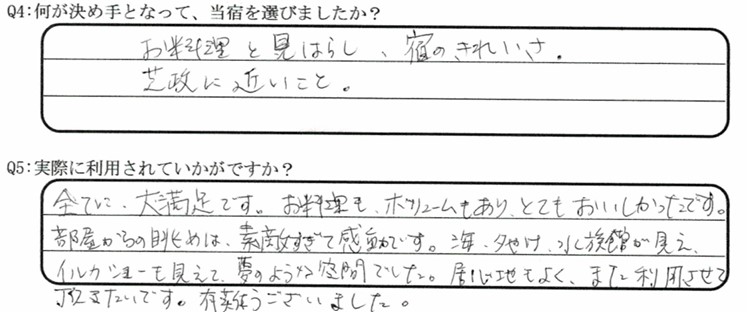 Q4:何が決め手となって、当宿を選びましたか？
お料理と見はらし、宿のきれいさ。
芝政に近いこと。
Q5:実際に利用されていかがですか？
全てに、大満足です。お料理も、ボリュームもあり、とてもおいしかったです。
部屋からの眺めは、素敵すぎて感動です。海、夕やけ、水族館が見え、
イルカショーも見えて、夢のような空間でした。居心地もよく、また利用させて
頂きたいです。有難うございました。